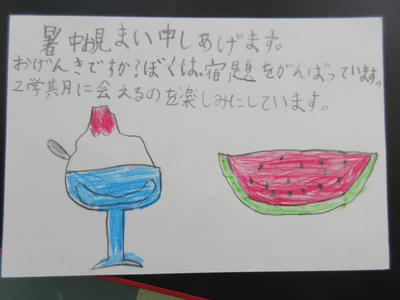 暑中お見まい申しあげます。
おげんきですか?ぼくは、宿題をがんばっています。
2学期に会えるのを楽しみにしています。